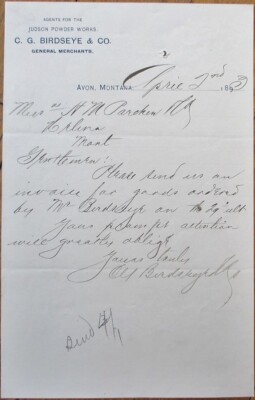 AGENTS FOR THE
JUDSON POWDER WORKS
C. G. BIRDSEYE & CO.
GENERAL MERCHANTS.
AVON, MONTANA, April 2nd 1893
Messrs H M Parchen & Co
Helena
Mont
Gentlemen:
Please send us an
invoice for goods ordered
by Mr Birdseye on the 29" ult
Your prompt attention
will greatly oblige
Yours truly
CG Birdseye & Co